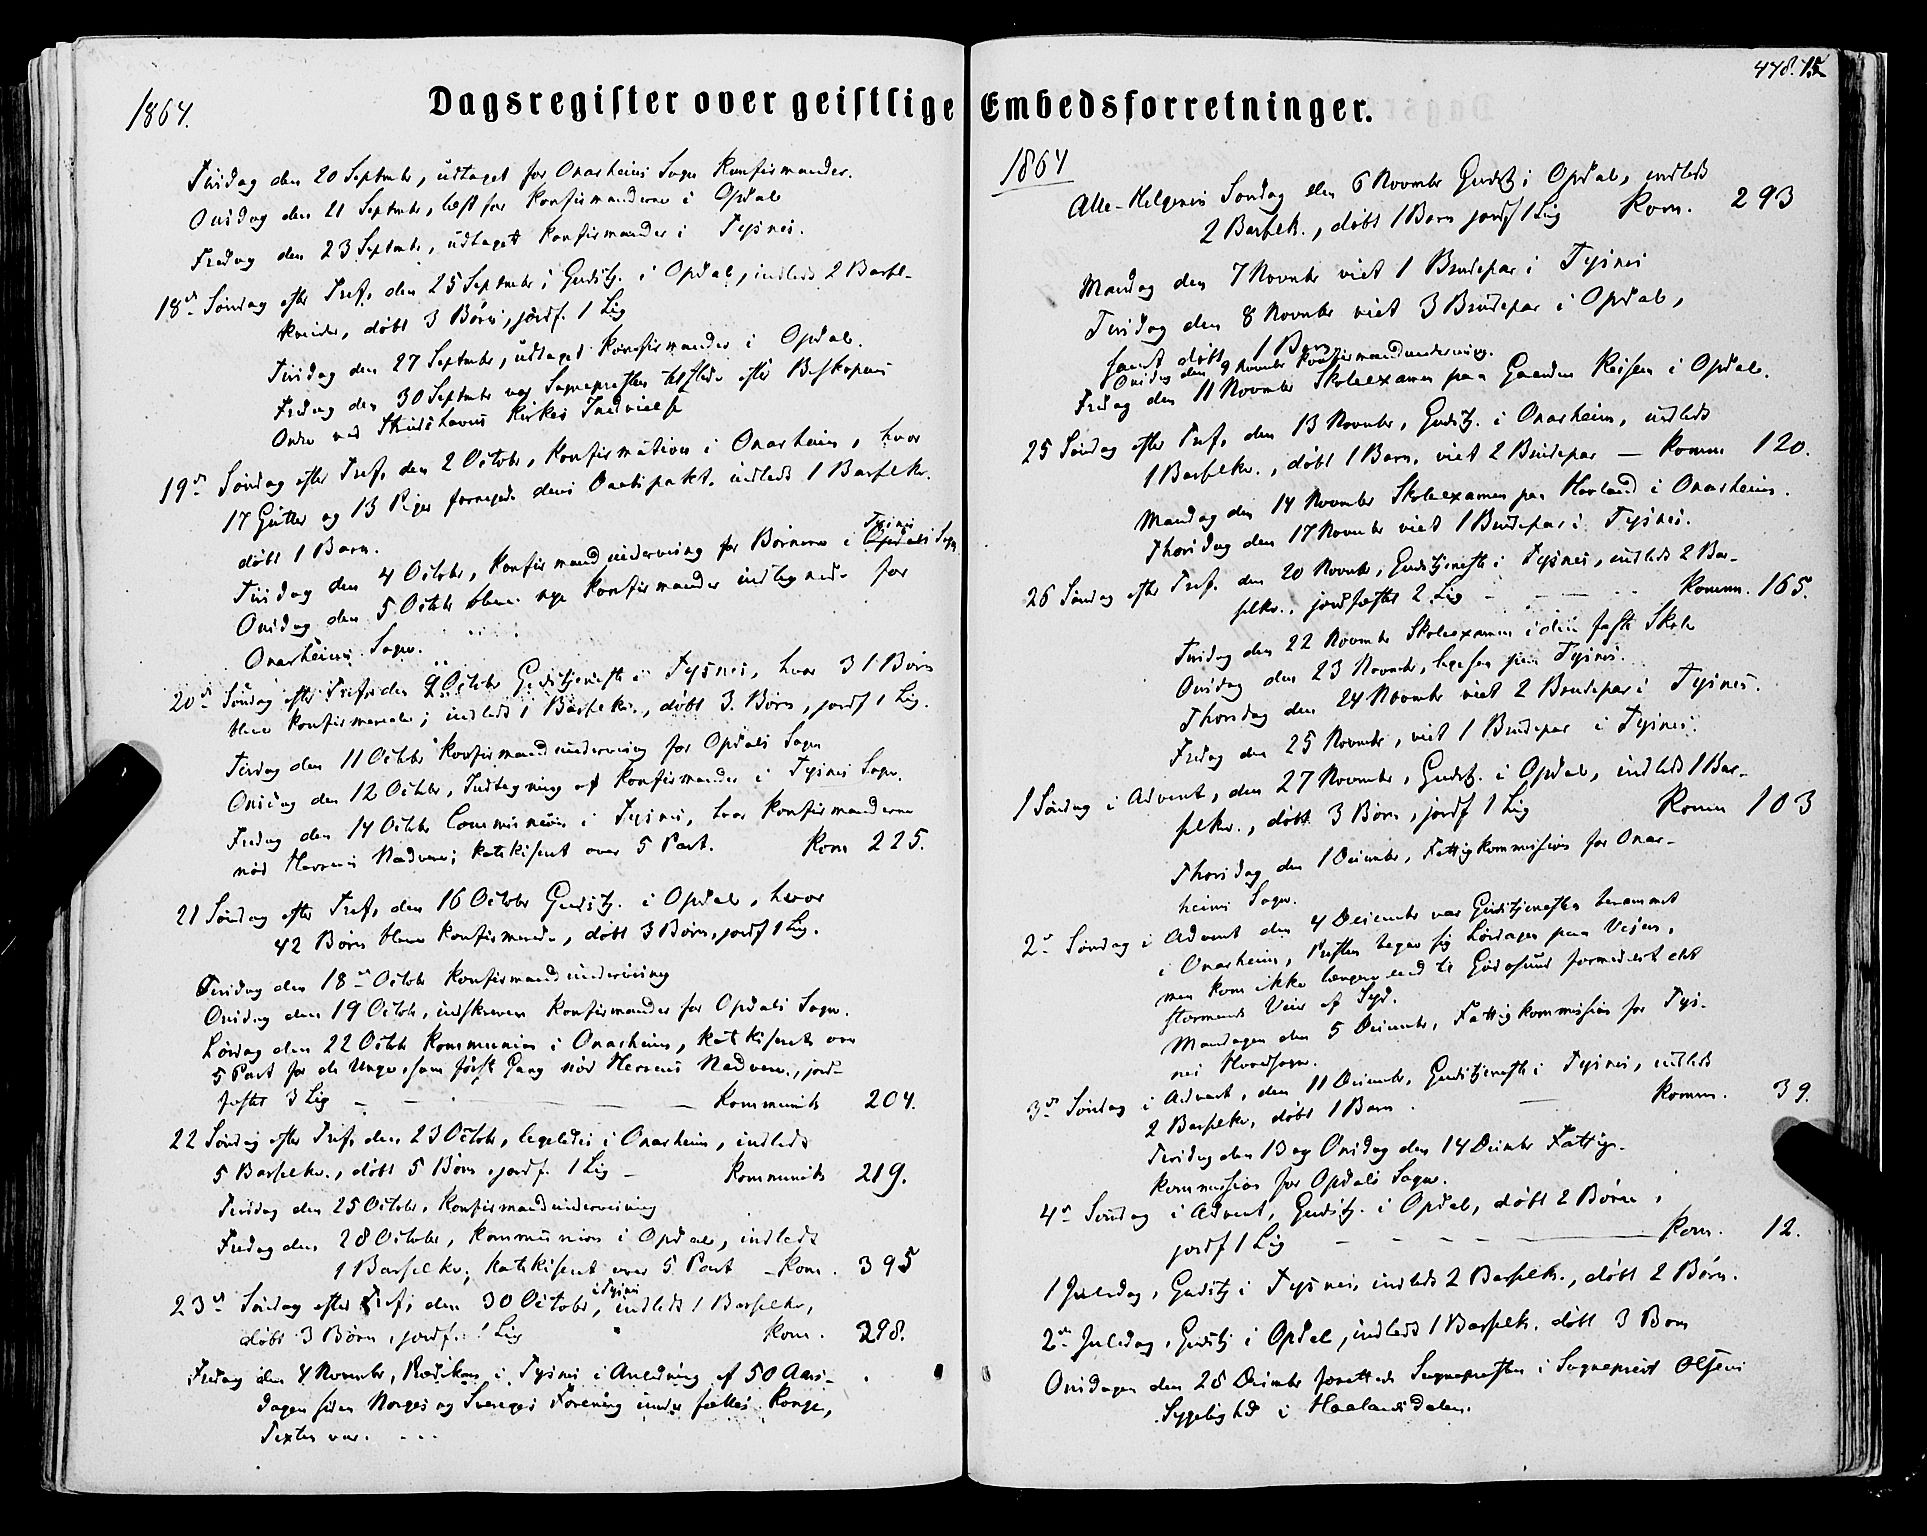 Dagsregister over geistlige Embedsforretninger.
1864.
Tirsdag den 20 Septmbr, udtaget for Onarheims Sogn Konfirmander.
Onsdag den 21 Septmbr, læst for Konfirmanderne i Opdal
Fredag den 23 Septmbr, udtaget Konfirmander i Tysnes.
18de Søndag efter Tref. den 25 Septmbr, Gudstj. i Opdal, indledt 2 Barsl-
kvinder, døbt 3 Børn, jordf. 1 Lig
Tirsdag den 27 Septmbr, udtaget Konfirmander i Opdal.
Fredag den 30 Septmbr var Sognepresten tilstede efter Biskopens
Ordre ved Skudshavns Kirkes Indvielse
19de Søndag efter Tref. den 2 Octobr, Konfirmation i Onarheim, hvor
17 Gutter og 13 Piger fornyede deres Daabspakt. indledt 1 Barselkv.
døbt 1 Barn.
Tirsdag den 4 Octobr, Konfirmandundervisning for Børnene i Opdals Sogn
Tysnes
Onsdag den 5 Octbr bleve nye Konfirmander indtegnede for
Onarheims Sogn.
20de Søndag efter Tref. den 9 Octobr Gudstjeneste i Tysnes, hvor 31 Børn
bleve konfirmerede; indledt 1 Barselkv., døbt 3 Børn, jordf 1 Lig.
Tirsdag den 11 Octobr Konfirmandundervisning for Opdals Sogn
Onsdag den 12 Octobr, Indtegning af Konfirmander i Tysnes Sogn.
Fredag den 14 Octobr Communion i Tysnes, hvor Konfirmanderne
nød Herrens Nadvere; katekiseret over 5 Part. Kom 225.
21 Søndag efter Tref. den 16 October Gudstj. i Opdal, hvor
42 Børn bleve konfirmerede, døbt 3 Børn, jordf 1 Lig.
Tirsdag den 18de Octobr Konfirmandundervisning
Onsdag den 19 Octobr, indskreven Konfirmander for Opdals Sogn.
Lørdag den 22 Octobr Kommunion i Onarheim, katekiseret over
5 Part for de Unge, som først Gang nød Herrens Nadvere, jord-
fæstet 3 Lig — — — Kommunik 204.
22 Søndag efter Tref. den 23 Octobr, ligeledes i Onarheim, indledt
5 Barselkv., døbt 5 Børn, jordf. 1 Lig — Kommunik 219.
Tirsdag den 25 Octobr, Konfirmandundervisning
Fredag den 28 Octobr, Kommunion i Opdal, indledt
1 Barselkv; katekiseret over 5 Part — Kom. 395
23de Søndag efter Tref, den 30 Octobr, i Tysnes indledt 1 Barselkv,
døbt 3 Børn, jordf. 1 Lig Kom. 298.
Fredag den 4 November, Prædiken i Tysnes i Anledning af 50 Aars-
dagen siden Norges og Sveriges Forening under fælles Konge,
Texten var. . . .
448. 15
1864
Alle-Helgenes Søndag den 6 Novmbr Gudstj i Opdal, indledt
2 Barselk., døbt 1 Barn jordf 1 Lig Kom. 293
Mandag den 7 Novmbr viet 1 Brudepar i Tysnes
Tirsdag den 8 Novmbr viet 3 Brudepar i Opdal,
samt døbt 1 Barn
Onsdag den 9 Novmbr Konfirmandundervisning.
Fredag den 11 Novmbr Skoleexamen paa Gaarden Reisen i Opdal.
25 Søndag efter Tref. den 13 Novmbr, Gudstj. i Onarheim, indledt
1 Barselkv., døbt 1 Barn, viet 2 Brudepar — Komm 120.
Mandag den 14 Novmbr Skoleexamen paa Hovland i Onarheim.
Thorsdag den 17 Novmbr viet 1 Brudepar i Tysnes.
26 Søndag efter Tref. den 20 Novmbr, Gudstjeneste i Tysnes, indledt 2 Bar-
selkv., jordfæstet 2 Lig — — — Komm. 165.
Tirsdag den 22 Novmbr Skoleexamen i den faste Skole
Onsdag den 23 Novmbr, ligesaa paa Tysnes.
Thorsdag den 24 Novmbr viet 2 Brudepar i Tysnes.
Fredag den 25 Novmbr, viet 1 Brudepar i Tysnes.
1 Søndag i Advent, den 27 Novmbr, Gudstj. i Opdal, indledt 1 Bar-
selkv., døbt 3 Børn, jordf 1 Lig Komm 103
Thorsdag den 1 Decmbr, Fattigkommission for Onar-
heims Sogn.
2de Søndag i Advent den 4 Decembr var Gudstjenesten berammet
i Onarheim, Presten begav sig Lørdagen paa Veien,
men kom ikke længere end til Godøsund formedelst det
stormende Veir af Syd.
Mandagen den 5 Decmbr, Fattigkommission for Tys-
nes Hovedsogn.
3de Søndag i Advent, den 11 Decmbr, Gudstjeneste i Tysnes, indledt
2 Barselkv, døbt 1 Barn — Komm. 39.
Tirsdag den 13 og Onsdag den 14 Decmbr Fattig-
kommission for Opdals Sogn.
4de Søndag i Advent, Gudstj. i Opdal, døbt 2 Børn,
jordf 1 Lig — — — Kom. 12.
1 Juledag, Gudstj i Tysnes, indledt 2 Barselk., døbt 2 Børn.
2den Juledag, Gudstj i Opdal, indledt 1 Barselk. døbt 3 Born
Onsdagen den 28 Decmbr forrettede Sognepresten i Sogneprest Olsens
Sygelighed i Haalandsdalen.